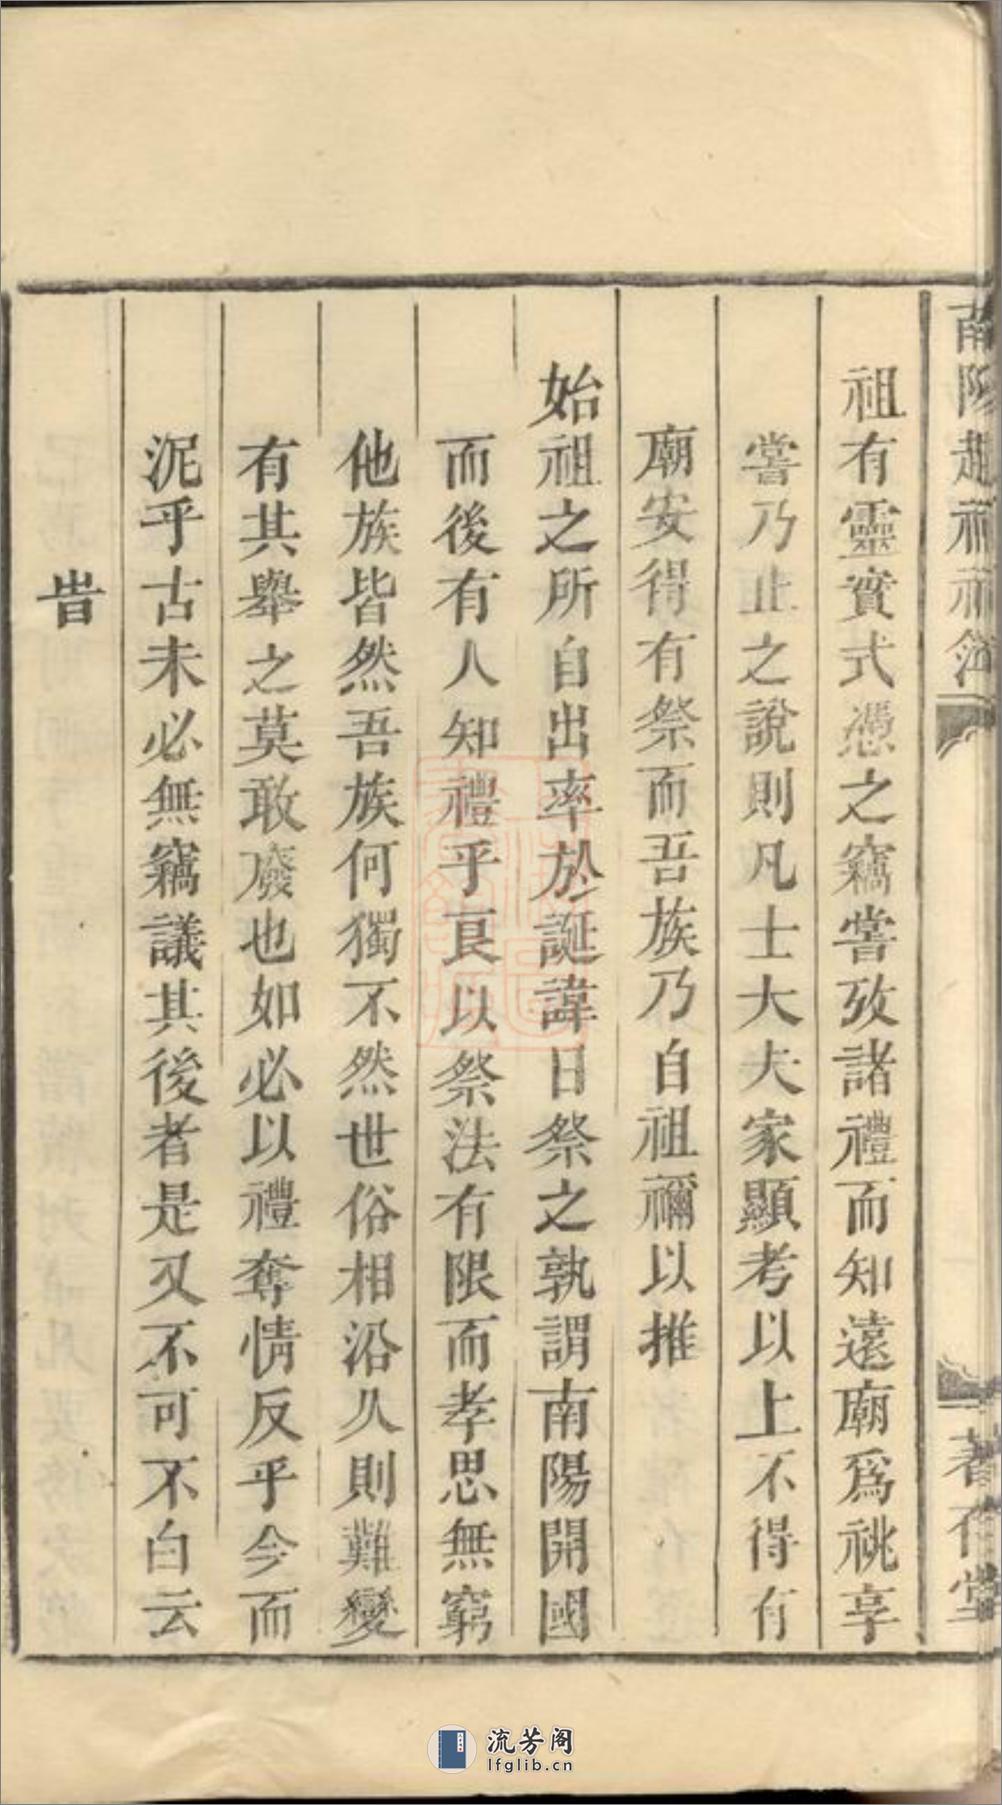 南陽趙
祖有靈實式憑之竊嘗攷諸禮而知遠廟爲祧享
嘗乃止之說則凡士大夫家顯考以上不得有
廟安得有祭而吾族乃自祖禰以推
始祖之所自出率於誕諱日祭之孰謂南陽開國
而後有人知禮乎良以祭法有限而孝思無窮
他族皆然吾族何獨不然世俗相沿久則難變
有其舉之莫敢廢也如必以禮奪情反乎今而
泥乎古未必無竊議其後者是又不可不白云
旹
流芳阁
lfglib.cn